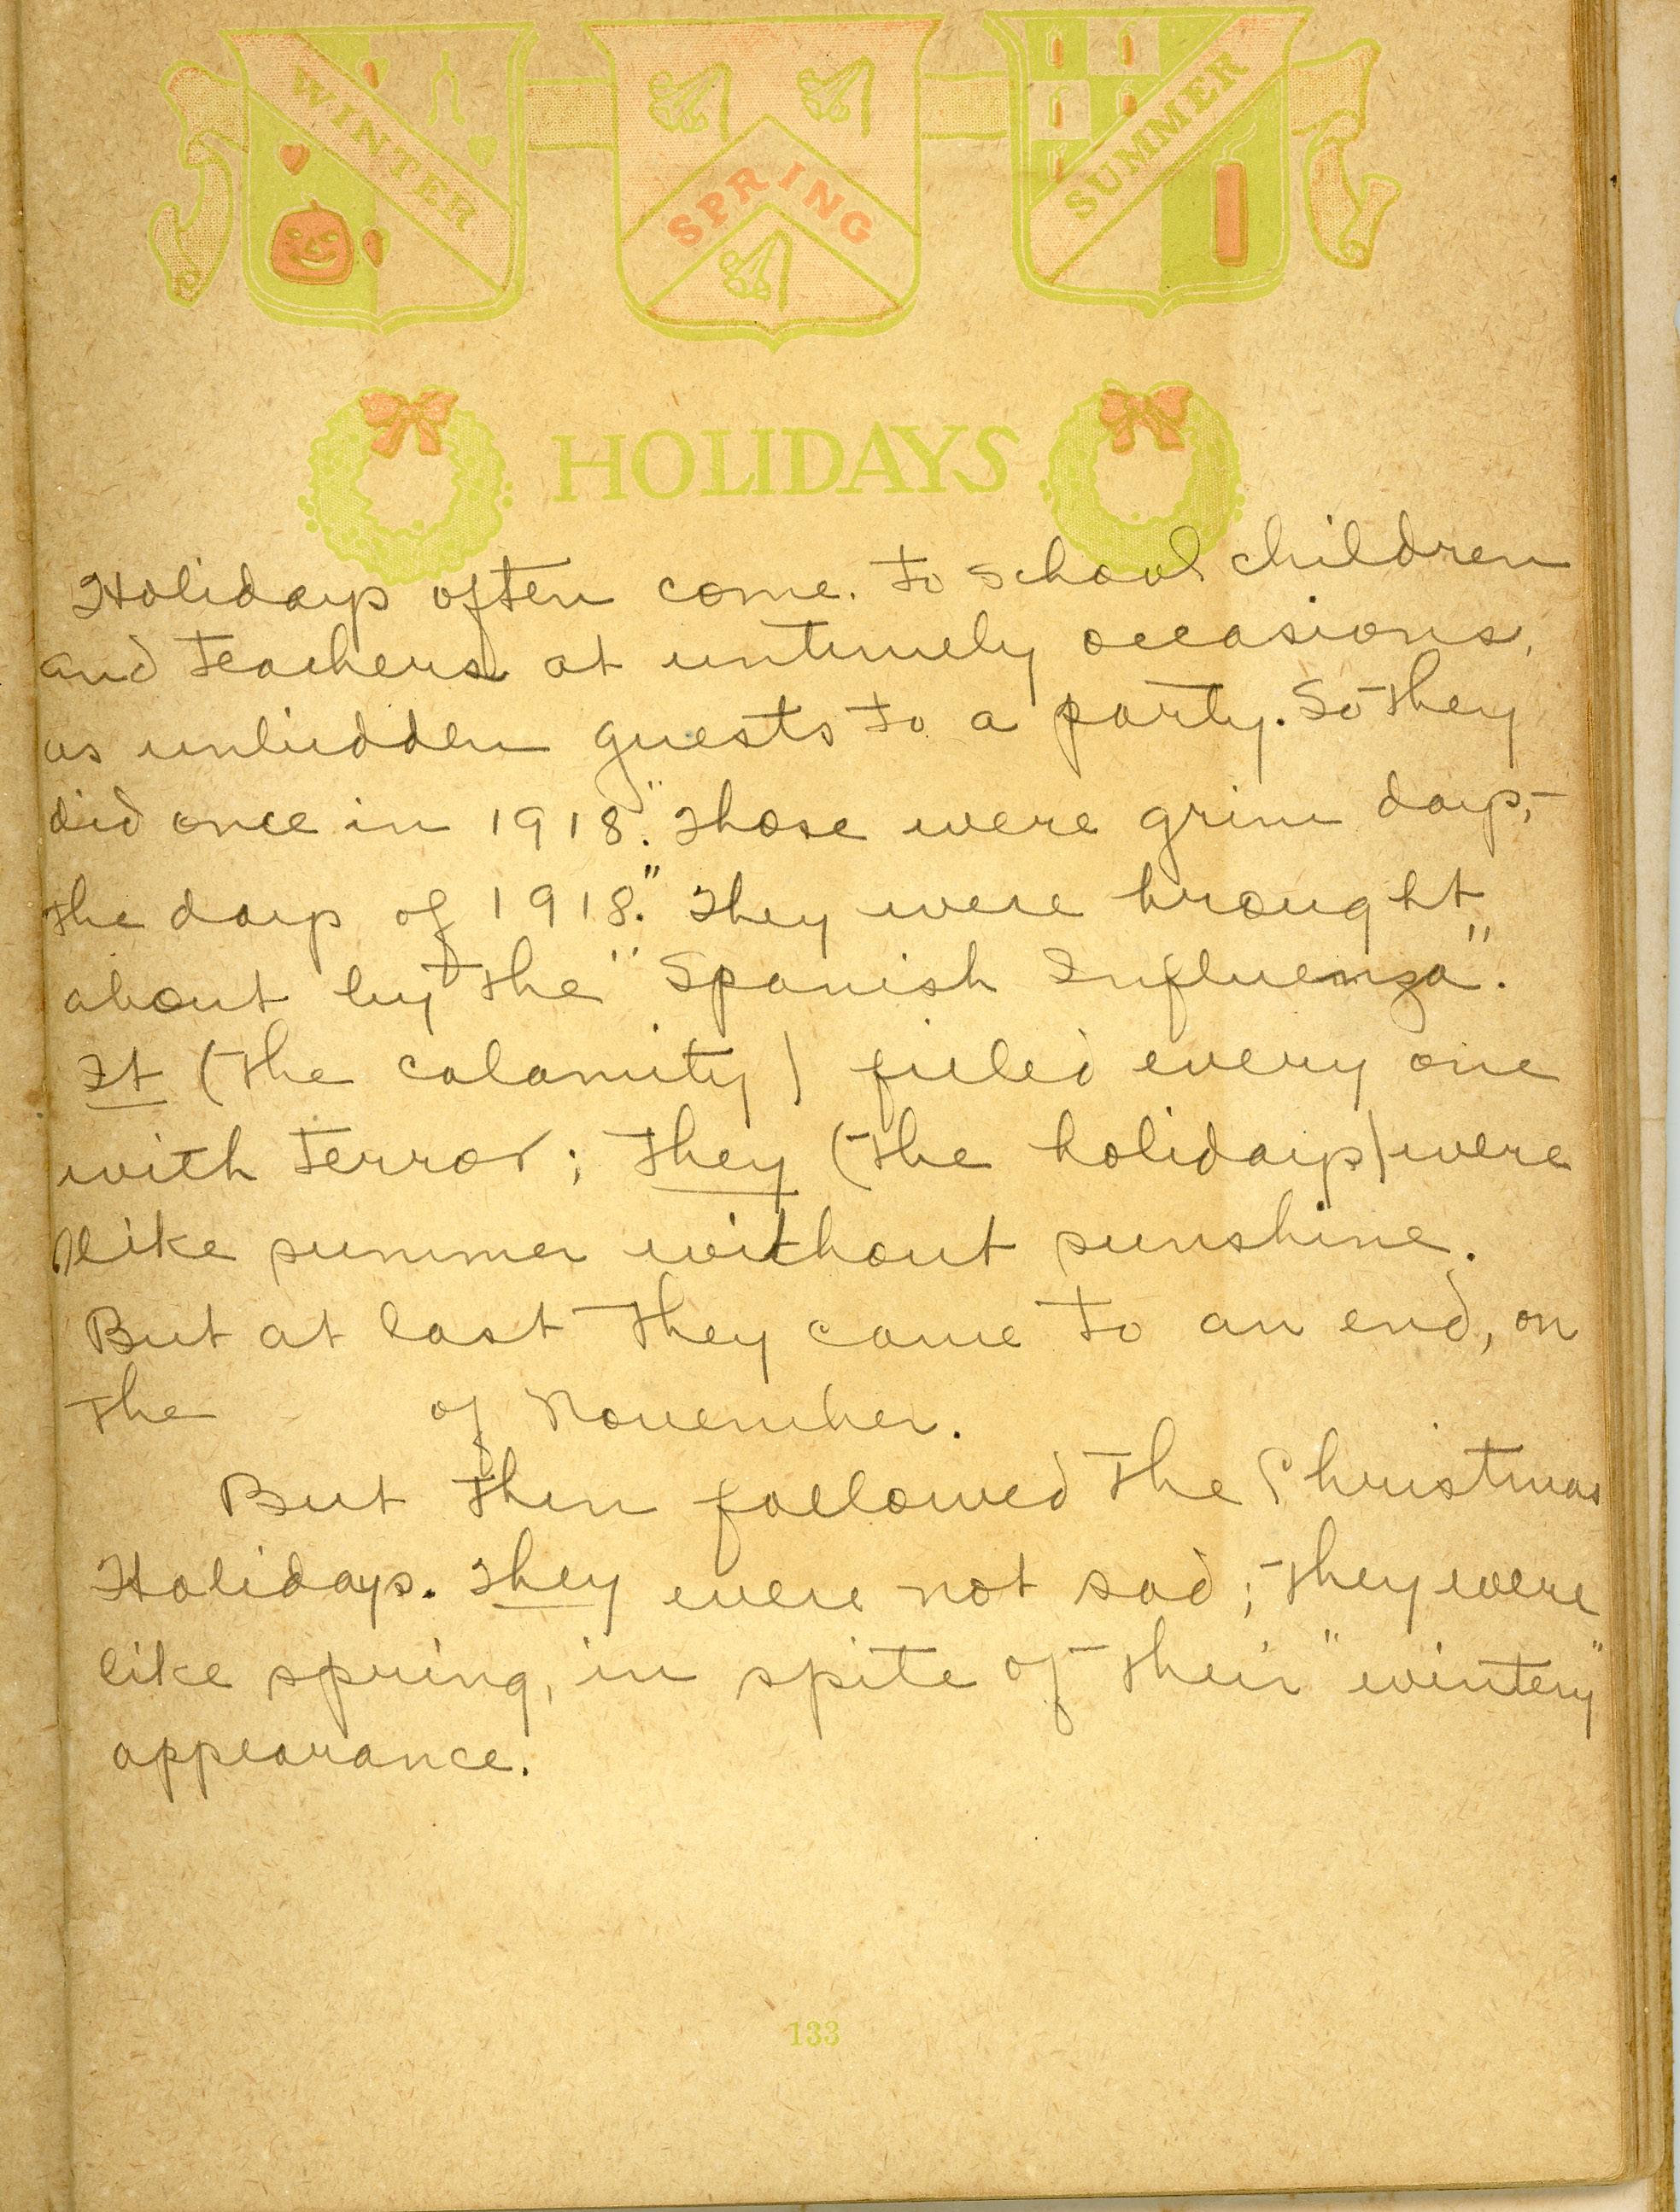 WINTER
SPRING
SUMMER
HOLIDAYS
Holidays often come. to school children
and teachers at untimely occasions,
as unbidden guests to a party. So they
did once in 1918. "Those were grim days,-
the days of 1918." They were brought
about by the "Spanish Influenza".
It (the calamity) filled every one
with terror; they (the holidays) were
like summer without sunshine.
But at last they came to an end, on
the of November.
But then followed the Christmas
Holidays. They were not sad; they were
like spring, in spite of their "wintery"
appearance.
133